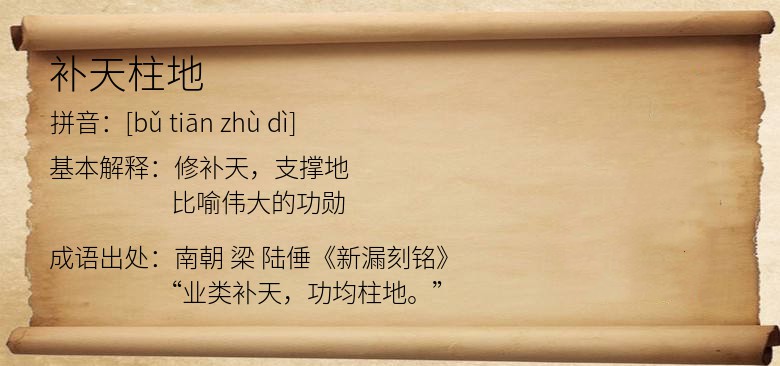 补天柱地
拼音：[bǔ tiān zhù dì]
基本解释：修补天，支撑地
比喻伟大的功勋
成语出处：南朝 梁 陆倕《新漏刻铭》
“业类补天，功均柱地。”